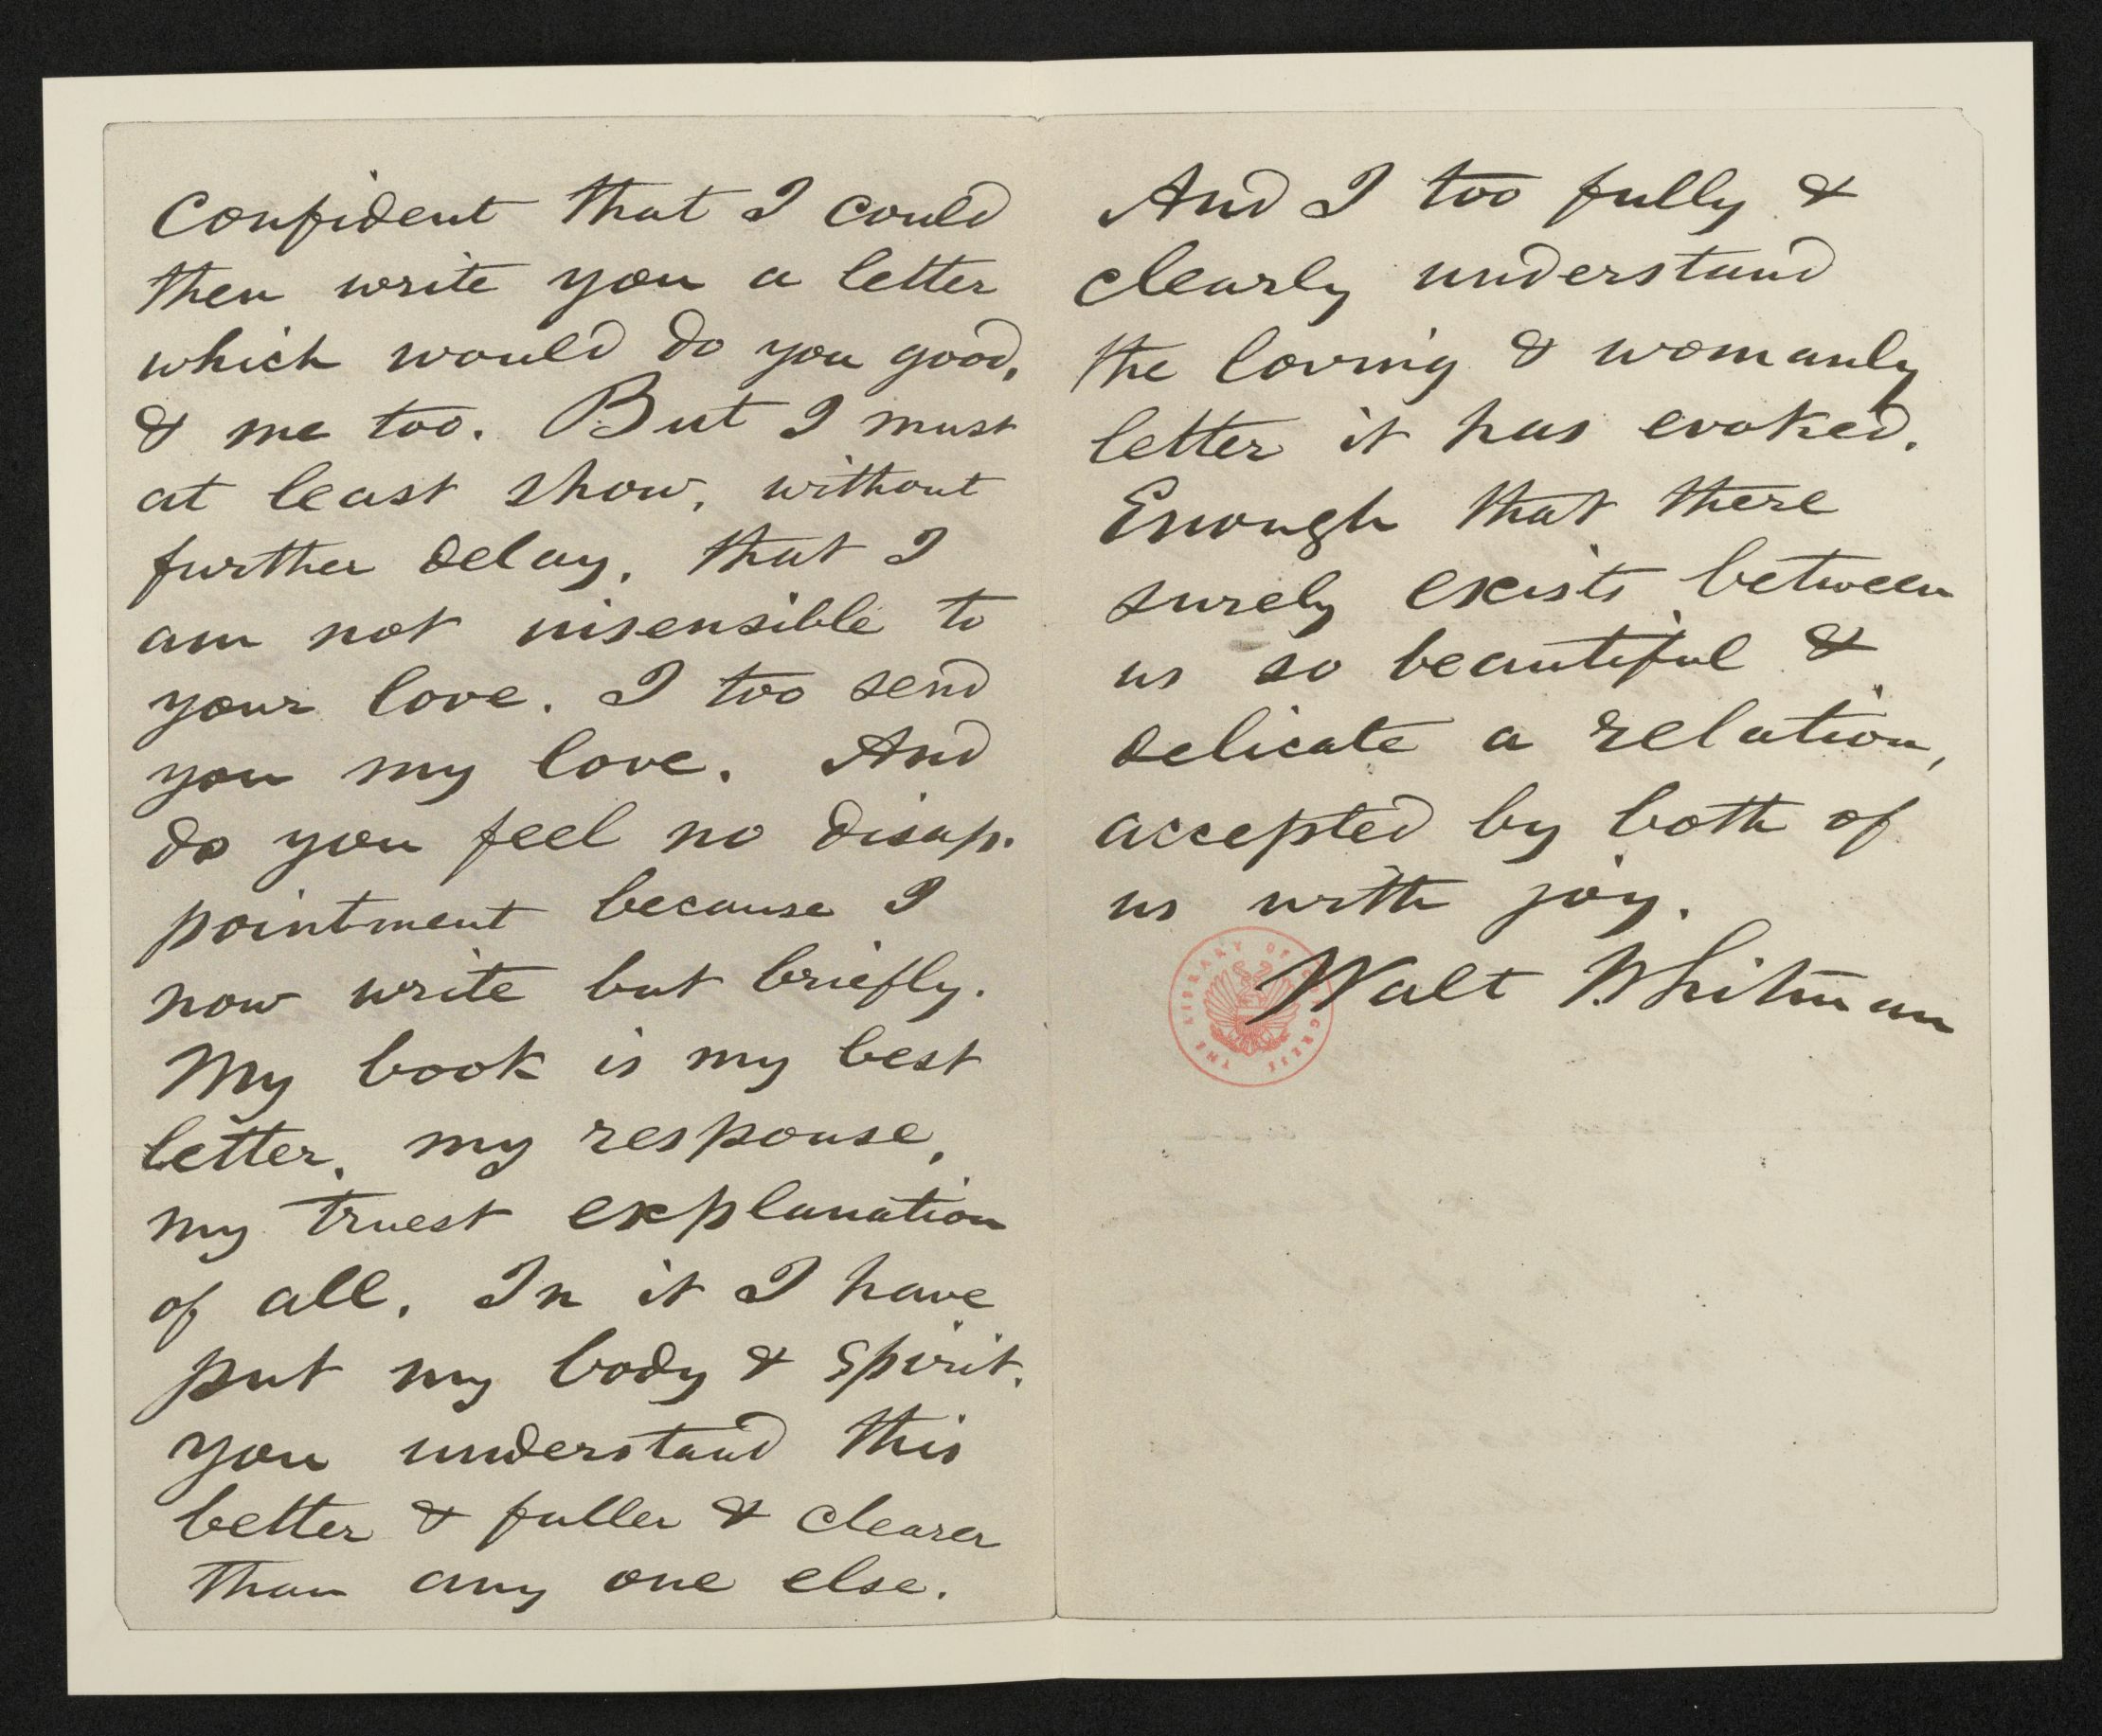 Confident that I could
then write you a letter
which would do you good,
& me too. But I must
at least show, without
further delay, that I
am not insensible to
your love. I too send
you my love. And
do you feel no disap-
pointment because I
now write but briefly.
My book is my best
letter, my response,
my truest explanation
of all. In it I have
put my body & spirit.
you understand this
better & fuller & clearer
than any one else.
And I too fully &
clearly understand
the loving & womanly
letter it has evoked.
Enough that there
surely exists between
us so beautiful &
delicate a relation,
accepted by both of
us with joy.
Walt Whitman
THE LIBRARY OF CONGRESS